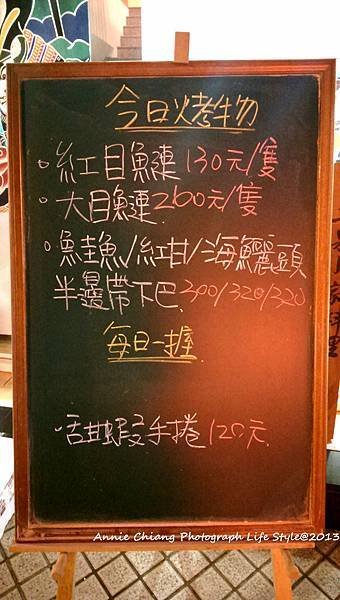 今日烤物
。紅目鰱130元/隻
。大目鰱260元/隻
。鮭魚/紅甘/海鱺頭
半邊帶下巴300/320/320
每日一握
・甜蝦手捲120元
Annie Chiang Photograph Life Style@2013